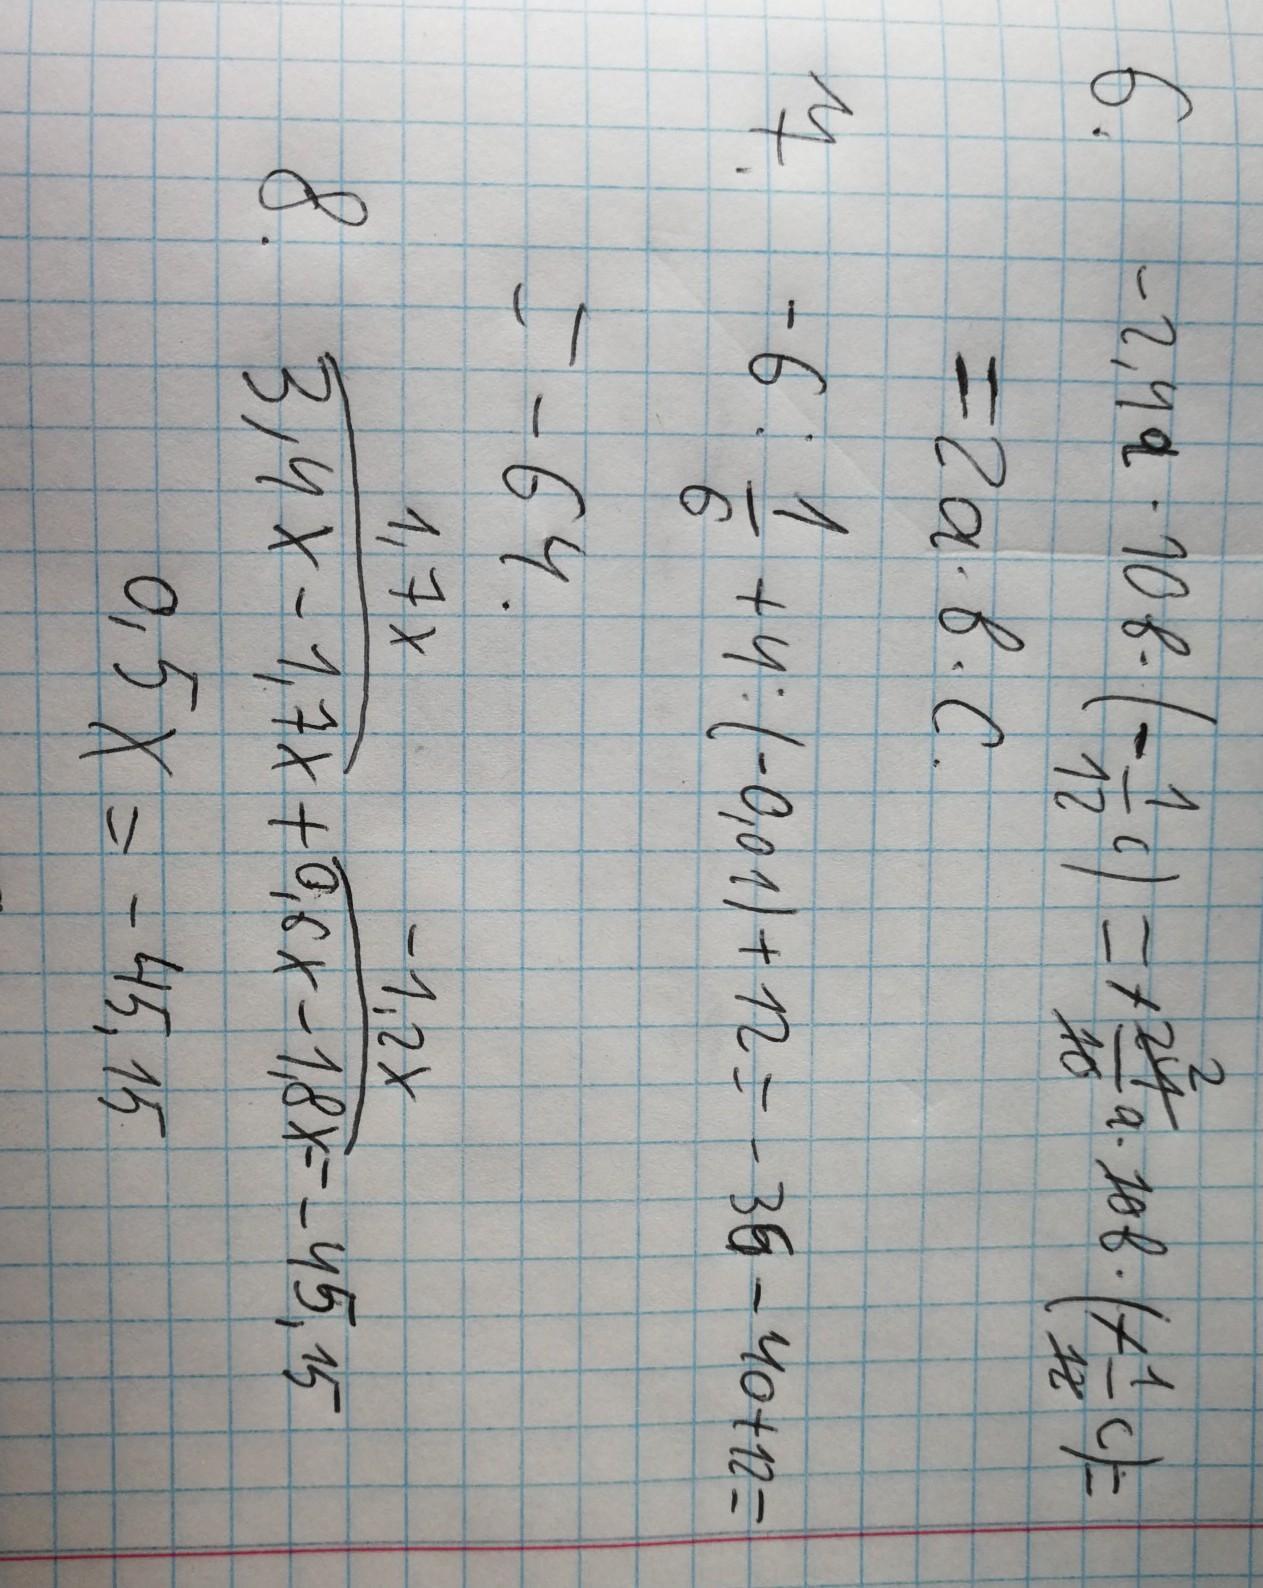 6. -2,4a · 10b · (-1/12 c) = +24/10 2 a · 10b · (+1/12 c) =
= 2a · b · c.
14. -6 : 1/6 + 4 : (-0,01) + 12 = -36 - 40 + 12 =
= -64.
1,7x -1,2x
8. 3,4x - 1,7x + 0,6x - 1,8x = -45,15
0,5x = -45,15